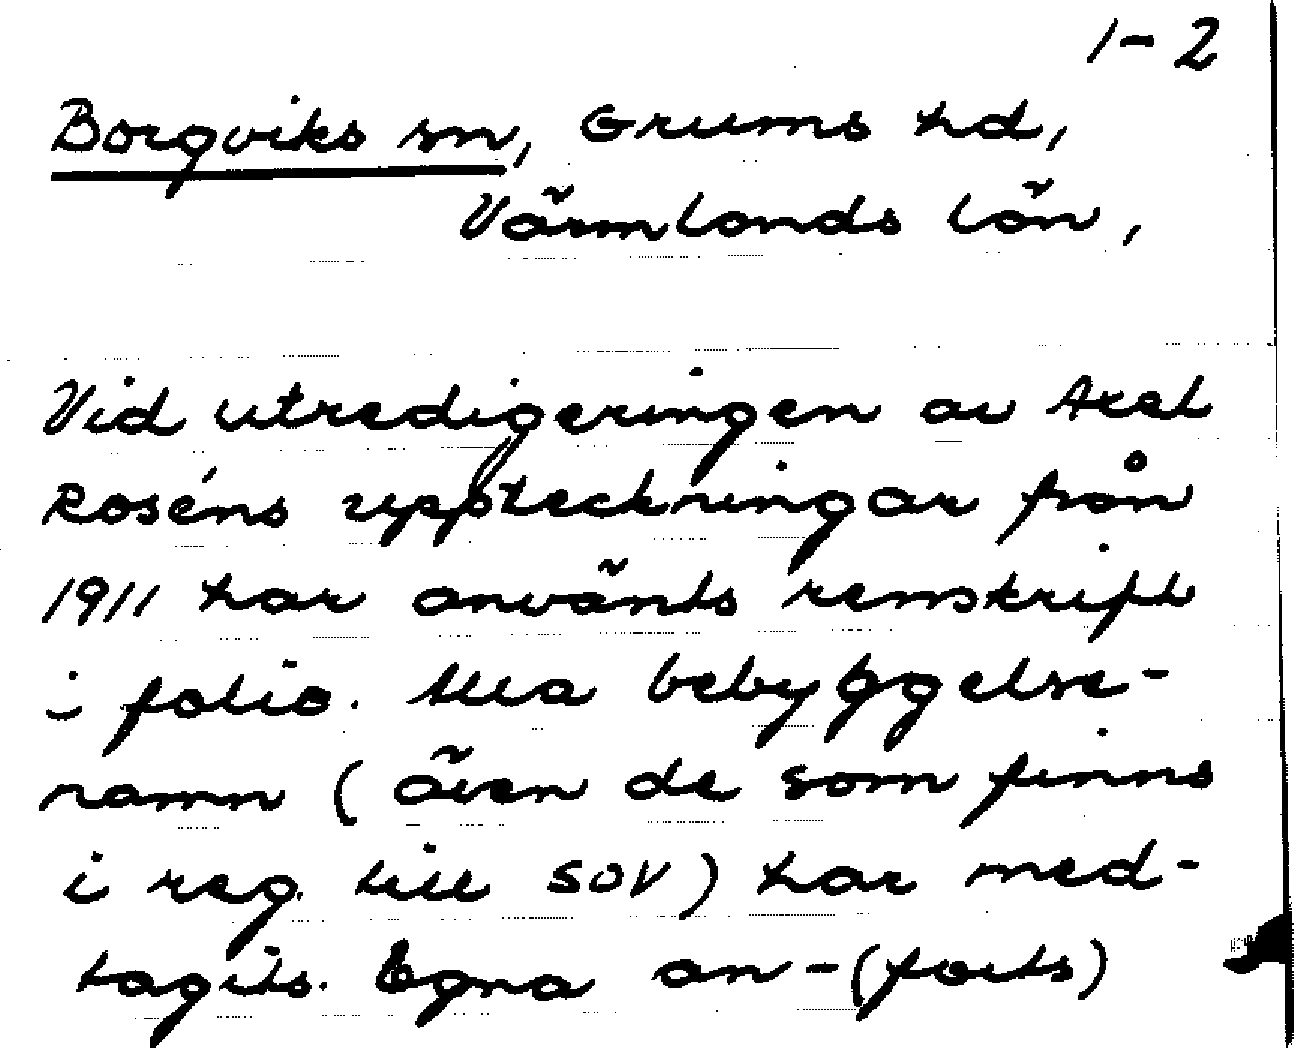 1-2
Borgviks sn, Grums hd,
Värmlands län,
Vid utredigeringen av Axel
Roséns uppteckningar från
1911 har använts renskrift
i folio. Alla bebyggelse-
namn (även de som finns
i reg. till SOV) har med-
tagits. Egna an-(forts)